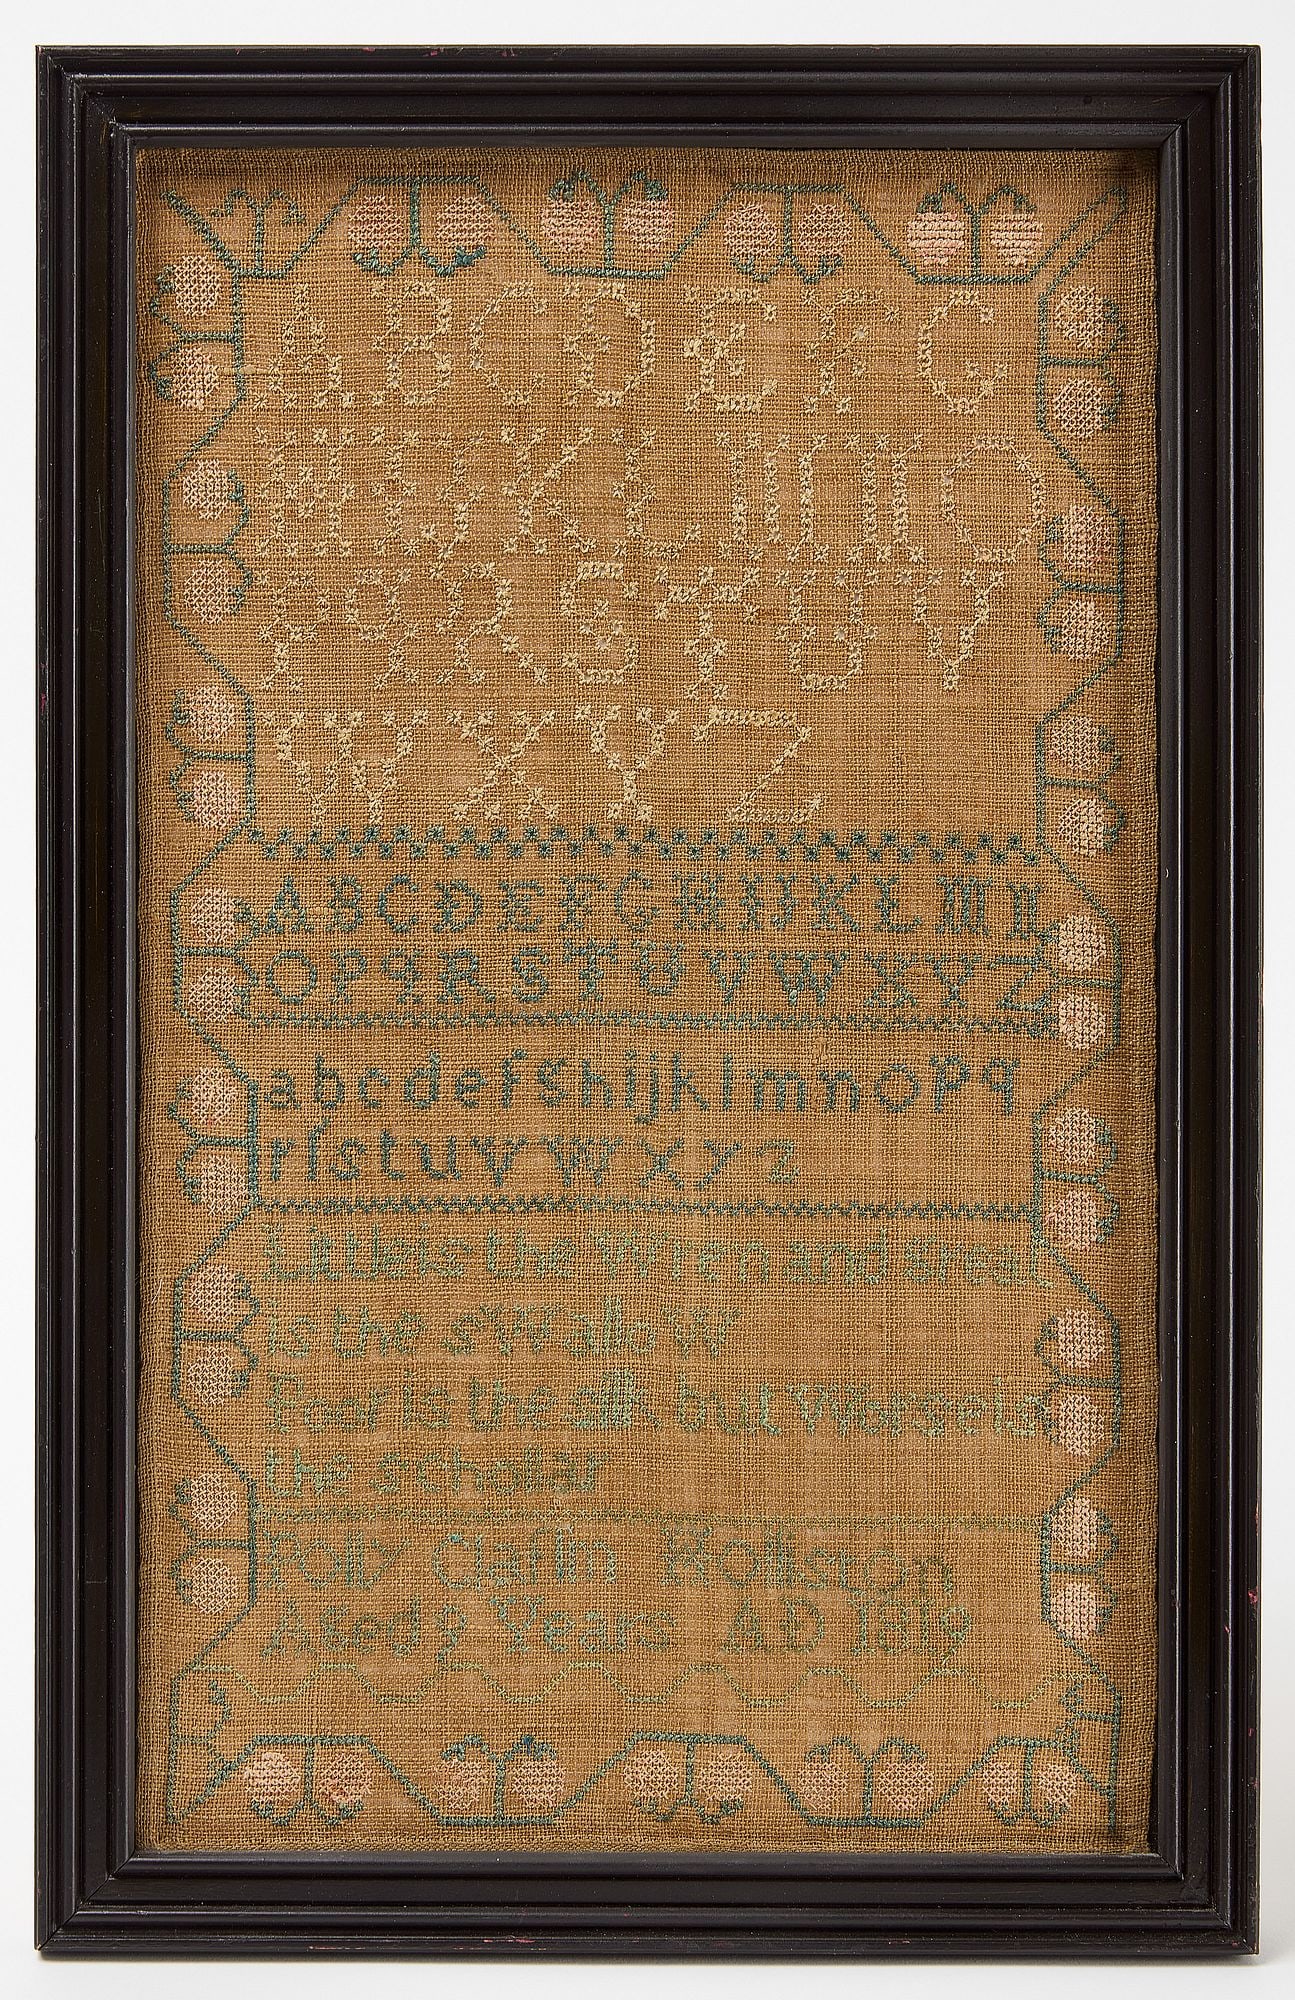 A B C D E F G
H I J K L M N O
P Q R S T U V
W X Y Z
A B C D E F G H I J K L M N
O P Q R S T U V W X Y Z
a b c d e f g h i j k l m n o p q
r ſ s t u v w x y z
Little is the Wren and great
is the sWalloW
Poor is the silk but Worse is
the schollar
Polly Claflin Holliston
Aged 9 Years AD 1819